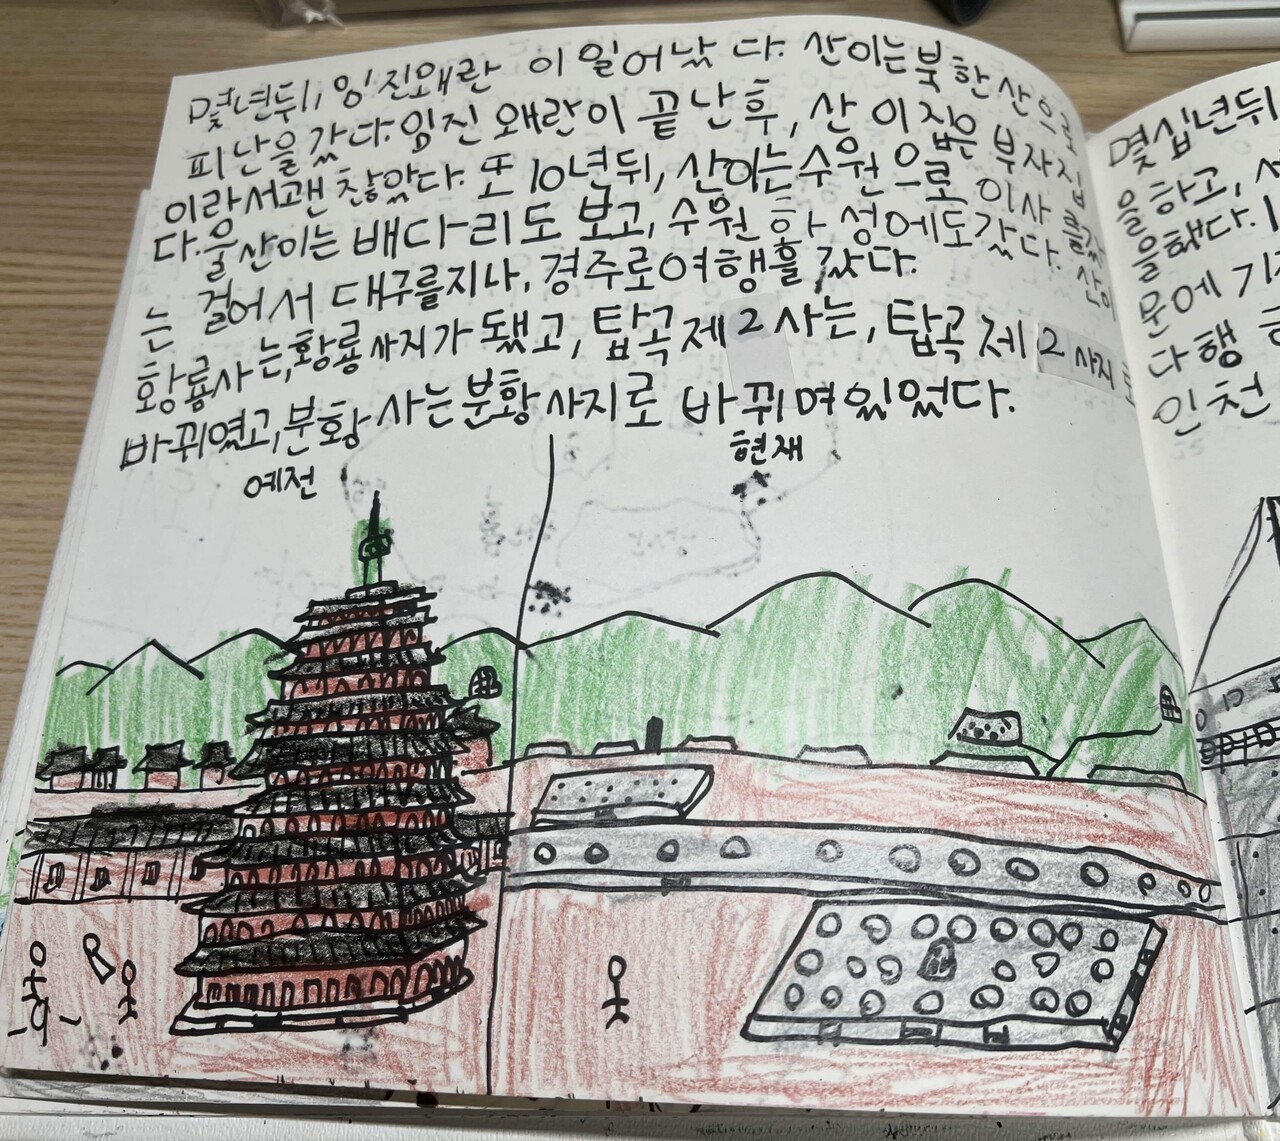 몇년뒤, 임진왜란 이 일어났 다. 산이는 북한산으로
피난을 갔다. 임진 왜란이 끝난후, 산 이 집은 부자집
이라서괜 찮았다. 또 10년뒤, 산이는 수원 으로 이사 를갔
다. 울산이는 배다리도 보고, 수원 화 성에도갔다. 산이
는 걸어서 대구를지나, 경주로여행을 갔다.
황룡사 는,황룡 사지가 됐고, 탑곡제2사는, 탑곡 제2사지로
바뀌였고,분황 사는분황 사지로 바뀌며있었다.
예전
현재
몇십년뒤
을하고,
을했다.
문에
다행
인천